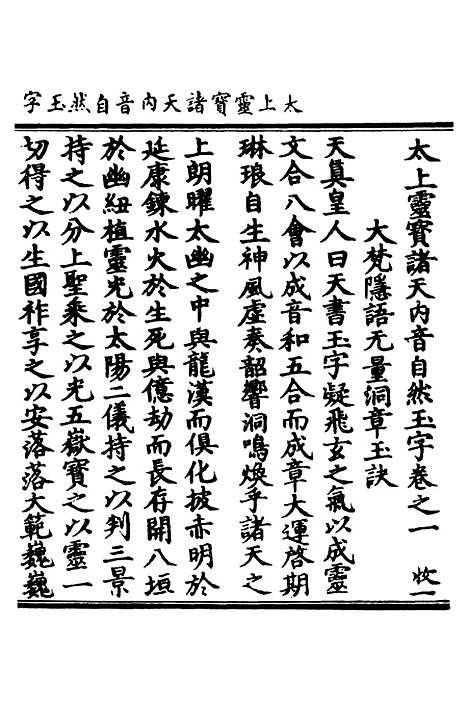 太上靈寳諸天內音自然玉字
太上靈寳諸天內音自然玉字卷之一　收一
大梵隱語无量洞章玉訣
天真皇人曰天書玉字凝飛玄之氣以成靈
文合八會以成音和五合而成章大運啓期
琳琅自生神風虛奏韶響洞鳴煥乎諸天之
上朗曜太幽之中與龍漢而俱化披赤明於
延康鍊水火於生死與億劫而長存開八垣
於幽紐植靈光於太陽二儀持之以判三景
持之以分上聖乘之以光五嶽寳之以靈一
切得之以生國祚享之以安落落大範巍巍